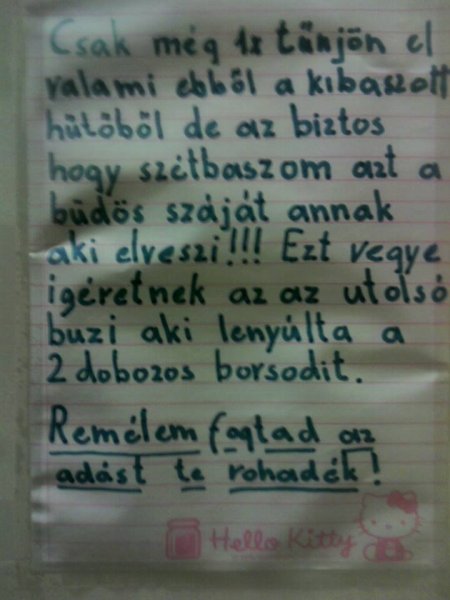 Csak még 1x tűnjön el
valami ebből a kibaszott
hűtőből de az biztos
hogy szétbaszom azt a
büdös száját annak
aki elveszi!!! Ezt vegye
igéretnek az az utolsó
buzi aki lenyúlta a
2 dobozos borsodit.
Remélem fogtad az
adást te rohadék!
Hello Kitty